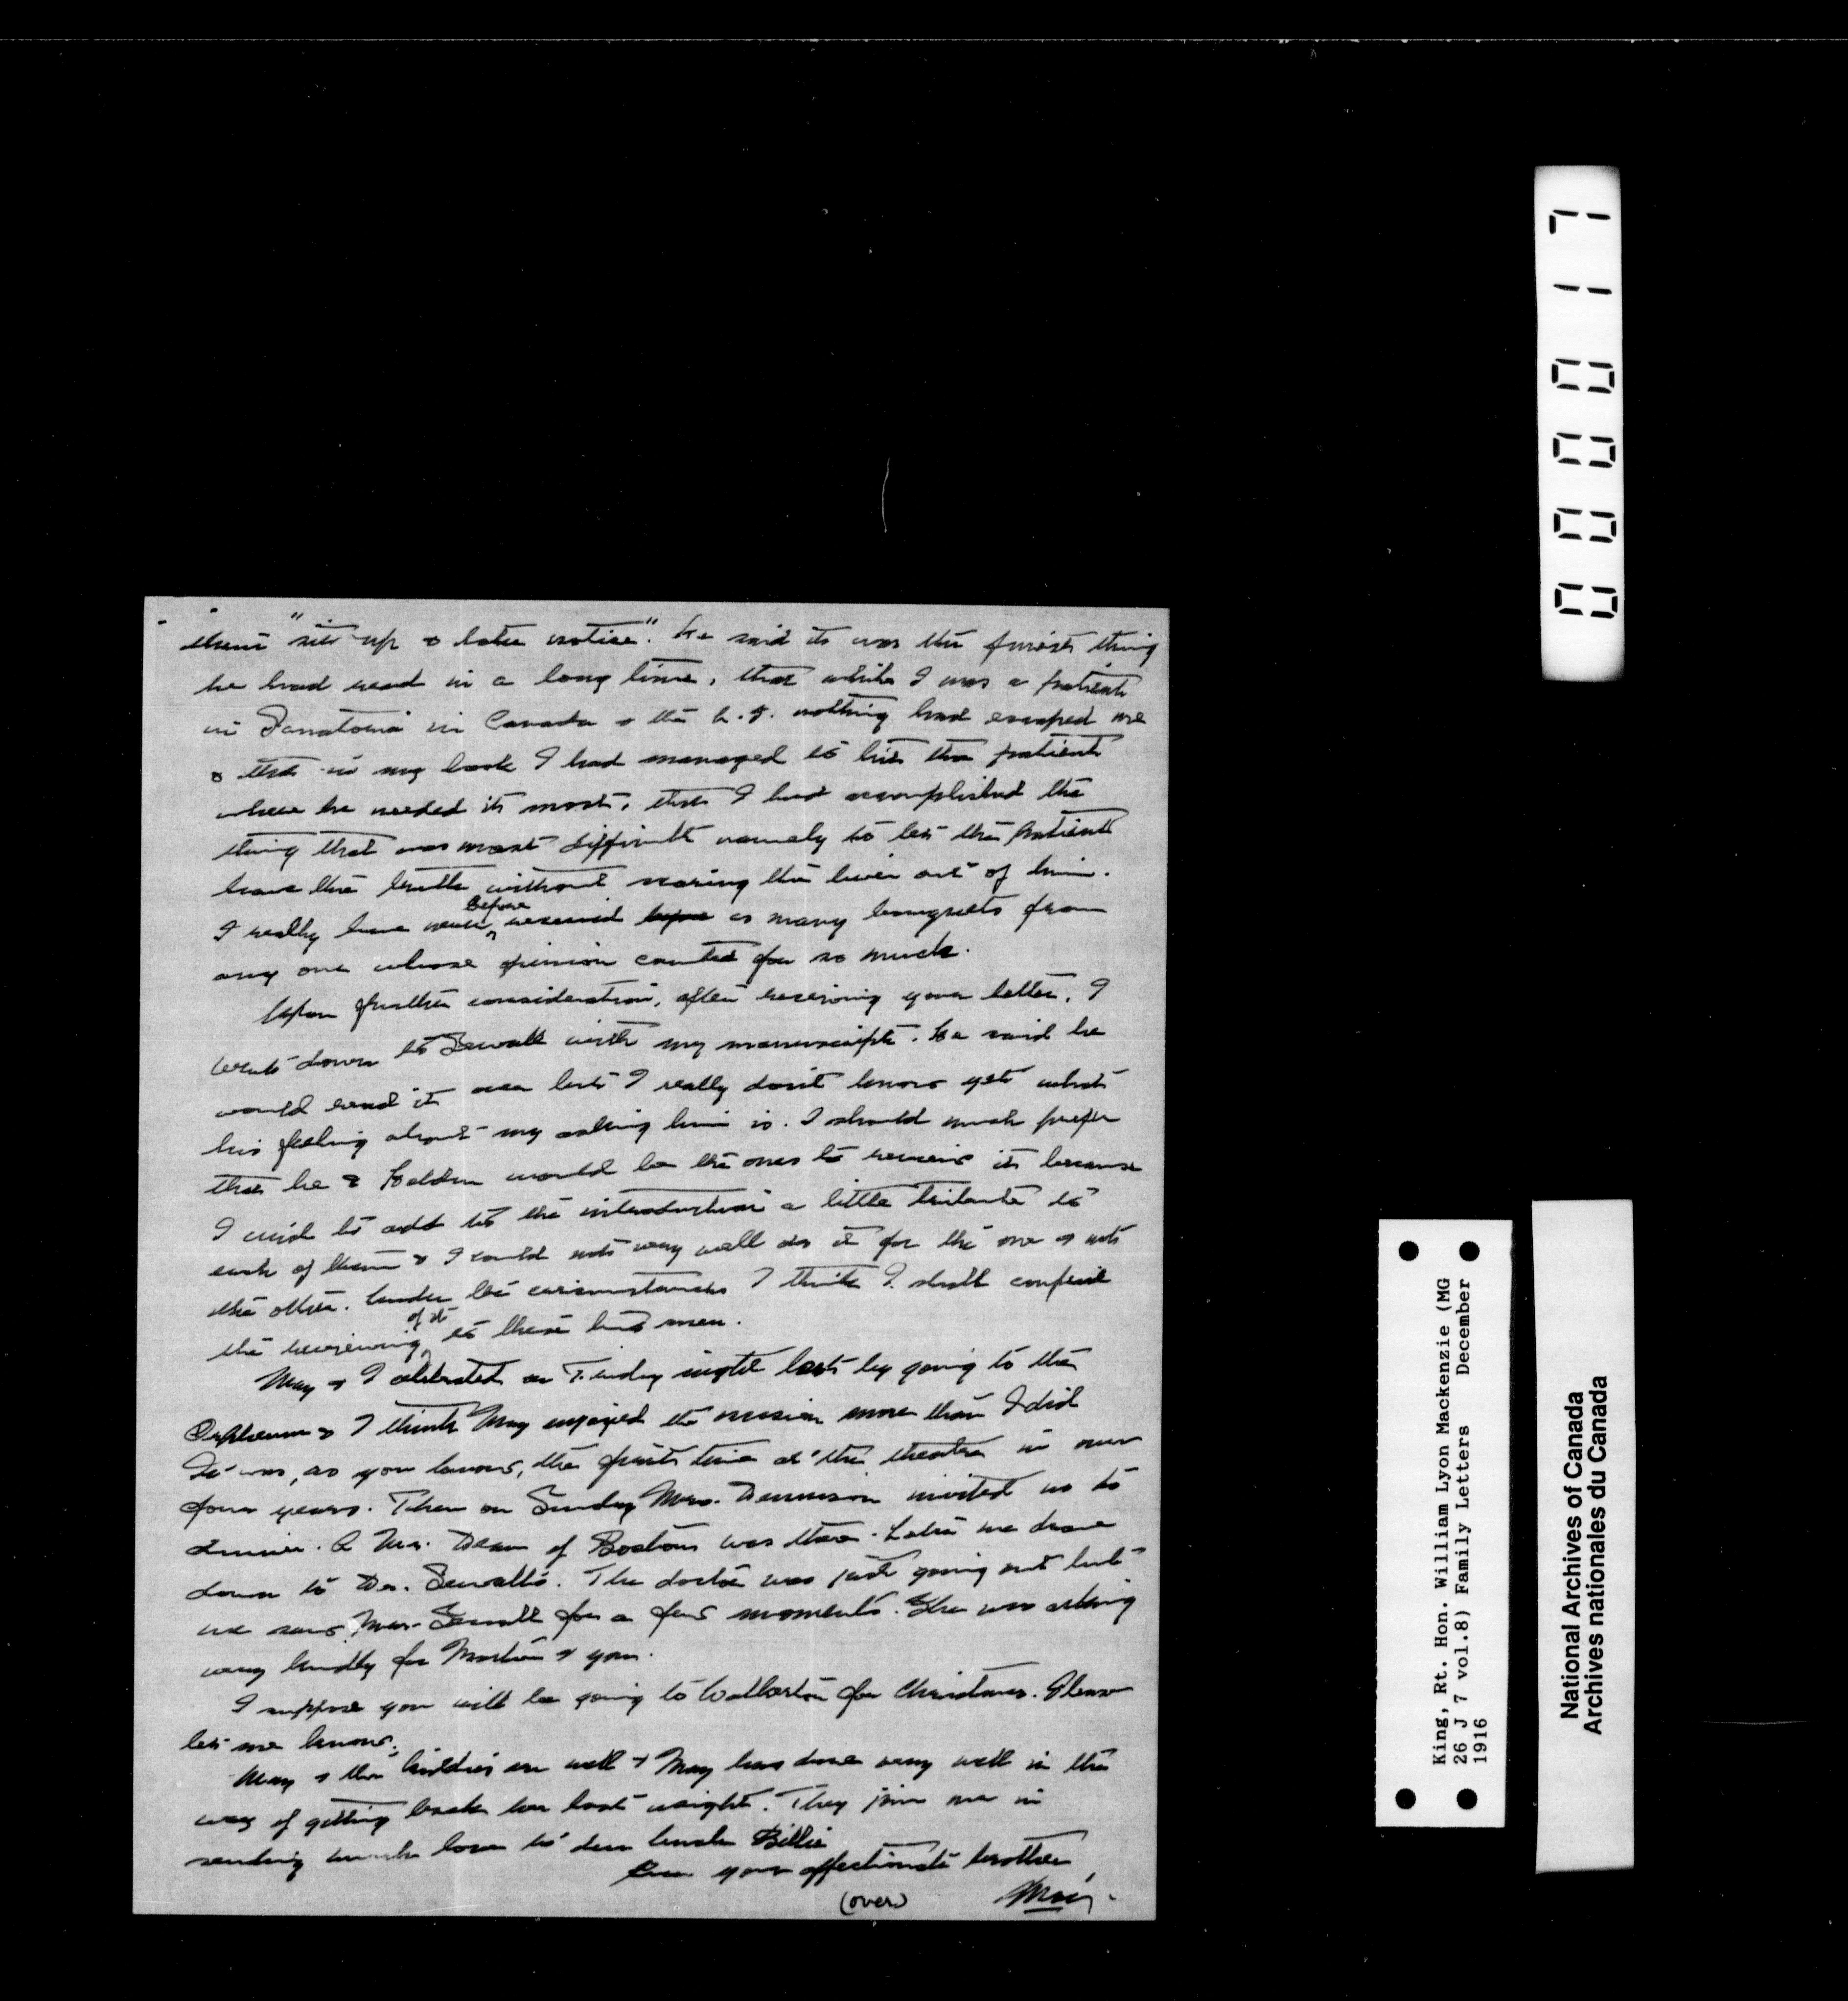 them "sit up & take notice". He said it was the finest thing
he had read in a long time, that while I was a patient
in Sanatoria in Canada & the U.S. nothing had escaped me
& that in my book I had managed to hit the patient
where he needed it most, that I had accomplished the
thing that was most difficult namely to let the patient
have the truth without scaring the liver out of him.
I really have never before received as many bouquets from
any one whose opinion counted for so much.
Upon further consideration, after receiving your letter, I
went down to Sewall with my manuscript. He said he
would read it over but I really don't know yet what
his feeling about my asking him is. I should much prefer
that he & Holden would be the ones to review it because
I wish to add to the introduction a little tribute to
each of them & I could not very well do it for the one & not
the other. Under the circumstances I think I shall confine
the reviewing of it to these two men.
May & I celebrated on Tuesday night last by going to the
Orpheum & I think May enjoyed the occasion more than I did
It was, as you know, the first time at the theatre in over
four years. Then on Sunday Mrs. Dennison invited us to
dinner. A Mr. Dean of Boston was there. Later we drove
down to Dr. Sewall's. The doctor was just going out but
we saw Mrs. Sewall for a few moments. She was asking
very kindly for Morton & you.
I suppose you will be going to Walkerton for Christmas. Please
let me know.
May & the kiddies are well & May has done very well in the
way of getting back her lost weight. They join me in
sending much love to dear Uncle Billie
Ever your affectionate brother
(over) Max.
0000117
King, Rt. Hon. William Lyon Mackenzie (MG
26 J 7 vol.8) Family Letters December
1916
National Archives of Canada
Archives nationales du Canada